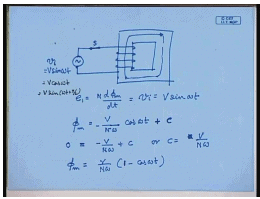 S
vi
= V sin ωt
= V cos ωt
= V sin(ωt+φ)
e₁ = N dφm/dt = vi = V sin ωt
φm = - V/Nω cos ωt + c
0 = - V/Nω + c or c = V/Nω
φm = V/Nω (1 - cos ωt)